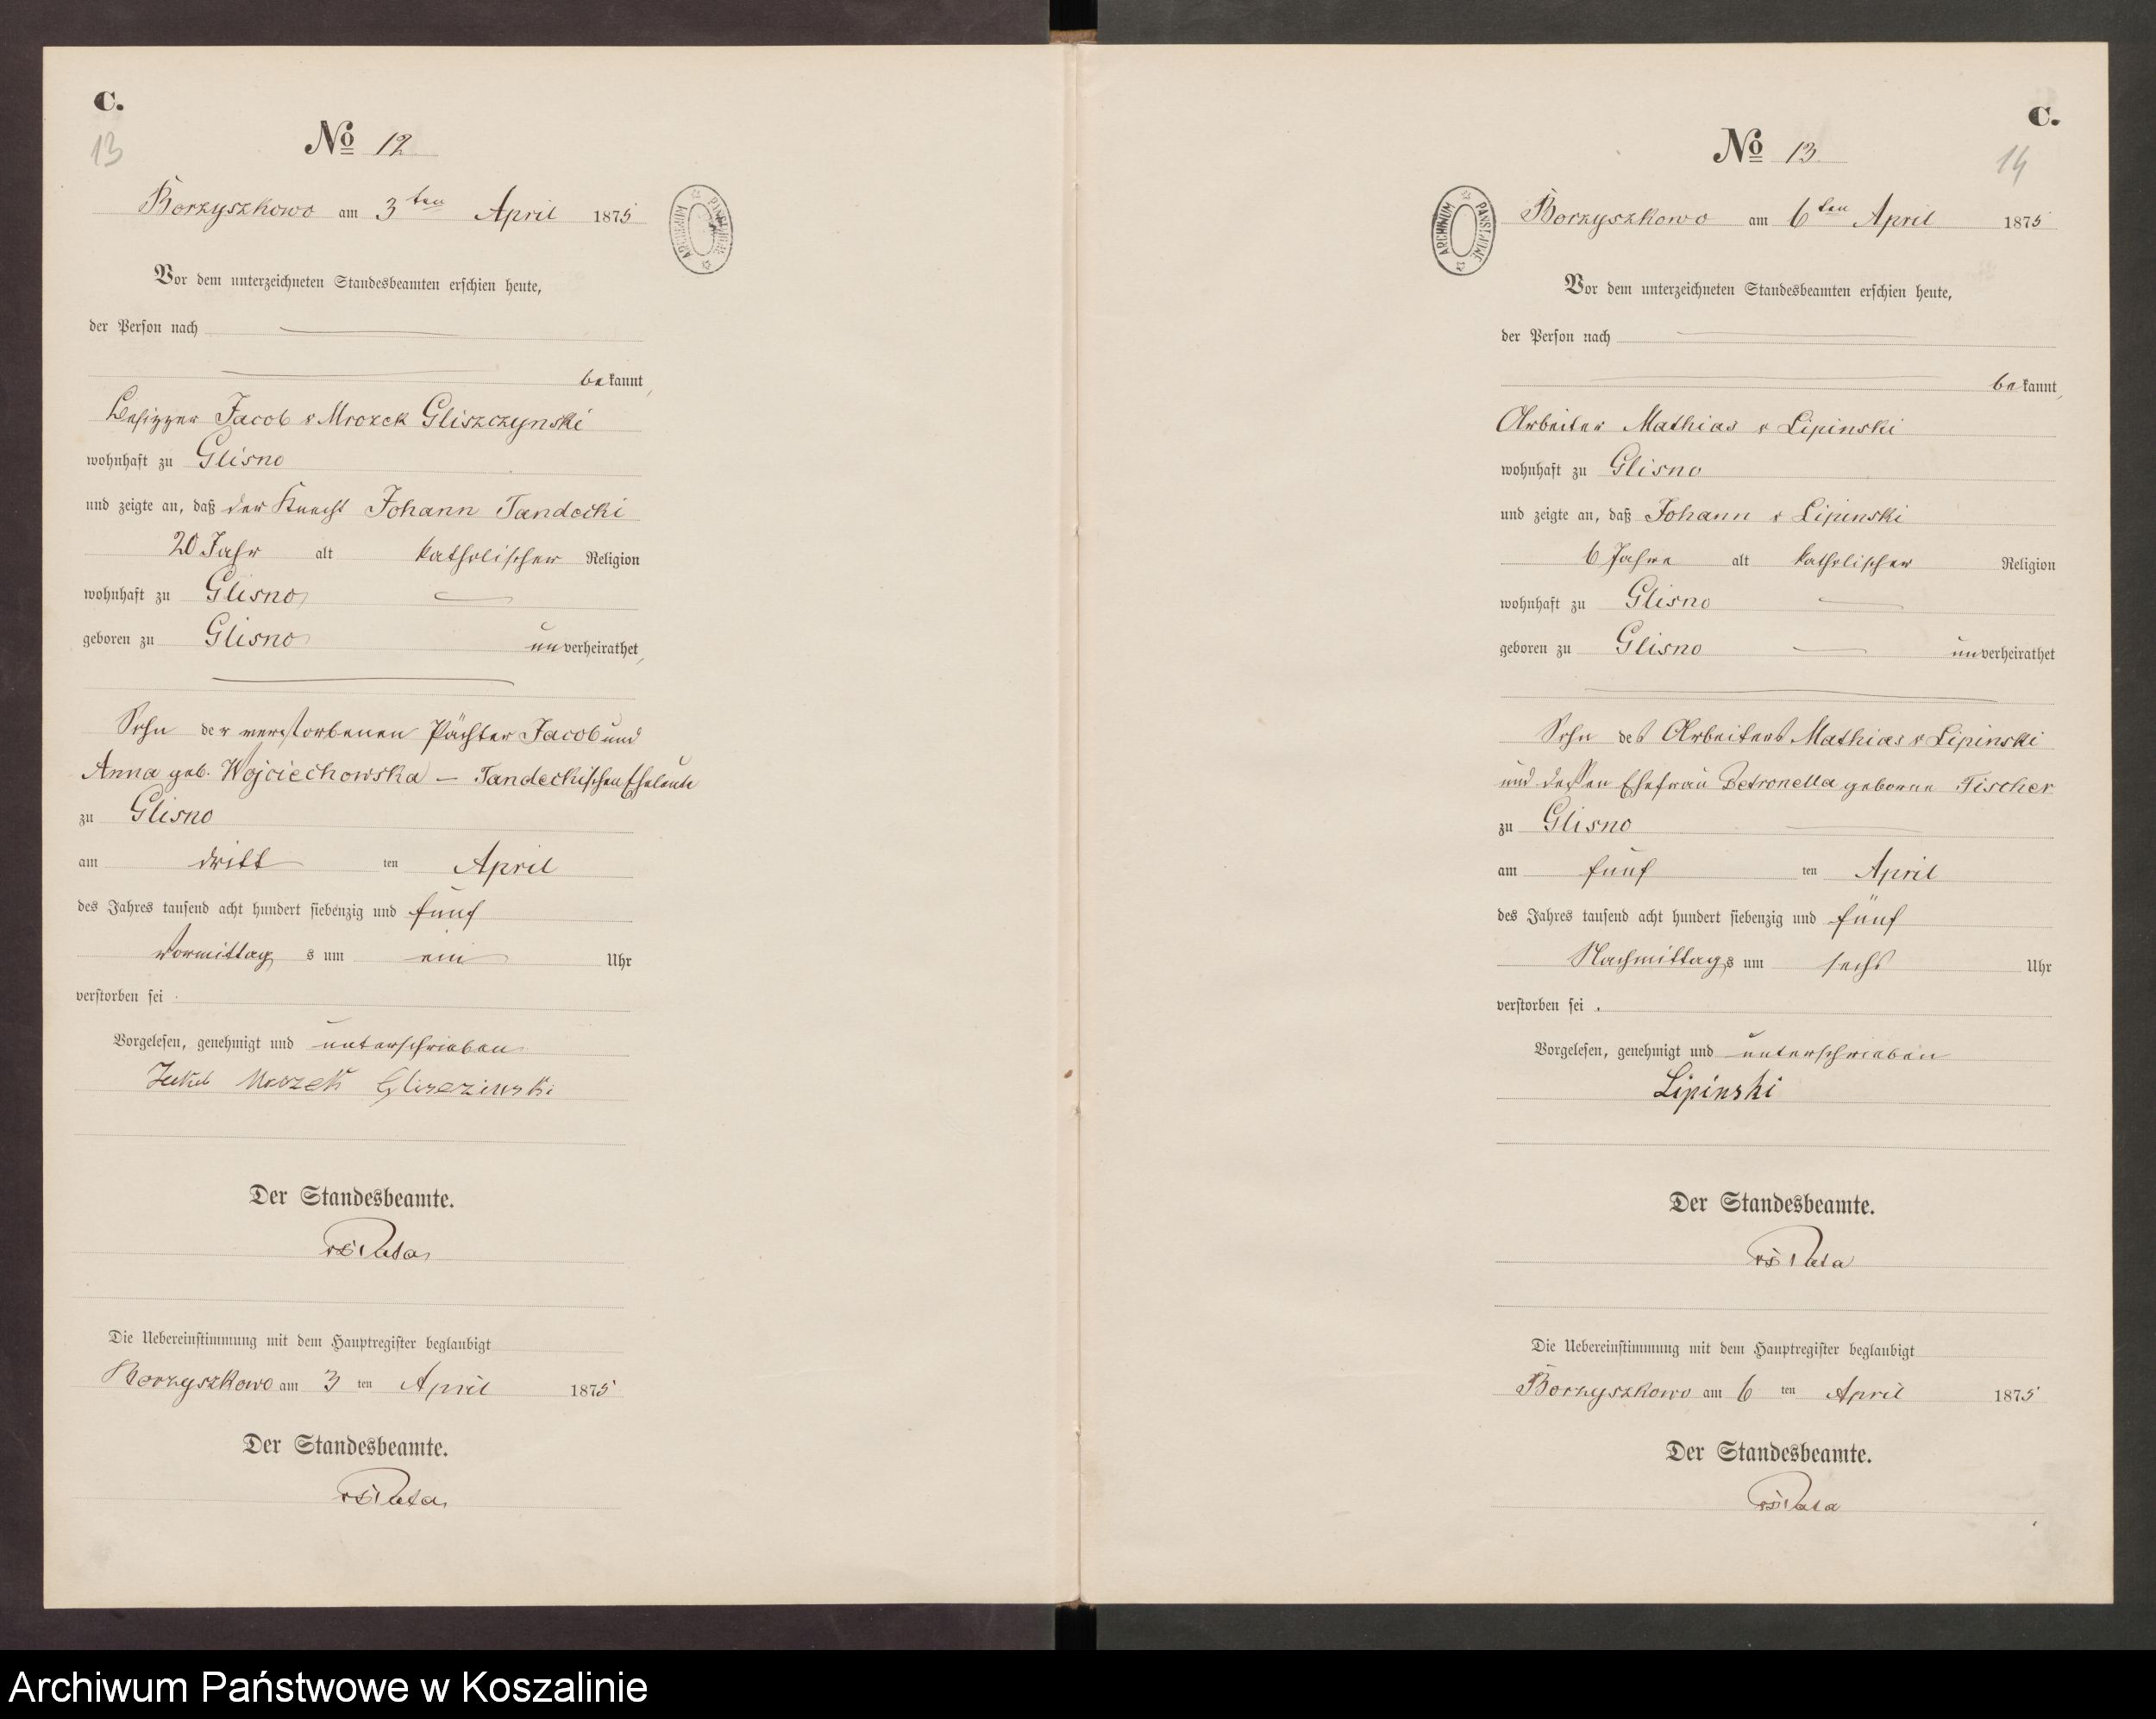 C.
13
No 12
Borzyszkowo am 3ten April 1875
ARCHIWUM PAŃSTWOWE
Vor dem unterzeichneten Standesbeamten erschien heute,
der Person nach
bekannt,
Besitzer Jacob v Mrozek Gliszczynski
wohnhaft zu Glisno
und zeigte an, daß der Knecht Johann Tandecki
20 Jahr alt katholischer Religion
wohnhaft zu Glisno
geboren zu Glisno unverheirathet,
Sohn der verstorbenen Pächter Jacob und
Anna geb. Wojciechowska – Tandeckischen Eheleute
zu Glisno
am dritt ten April
des Jahres tausend acht hundert siebenzig und fünf
Vormittag s um ein Uhr
verstorben sei
Vorgelesen, genehmigt und unterschrieben
Mrozek
Der Standesbeamte.
Die Uebereinstimmung mit dem Hauptregister beglaubigt
Borzyszkowo am 3 ten April 1875
Der Standesbeamte.
C.
14
No 13
ARCHIWUM PAŃSTWOWE
Borzyszkowo am 6ten April 1875
Vor dem unterzeichneten Standesbeamten erschien heute,
der Person nach
bekannt,
Arbeiter Mathias v Lipinski
wohnhaft zu Glisno
und zeigte an, daß Johann v Lipinski
6 Jahre alt katholischer Religion
wohnhaft zu Glisno
geboren zu Glisno unverheirathet
Sohn des Arbeiters Mathias v Lipinski
und dessen Ehefrau Petronella geborne Fischer
zu Glisno
am fünf ten April
des Jahres tausend acht hundert siebenzig und fünf
Nachmittag s um sechs Uhr
verstorben sei .
Vorgelesen, genehmigt und unterschrieben
Lipinski
Der Standesbeamte.
Die Uebereinstimmung mit dem Hauptregister beglaubigt
Borzyszkowo am 6 ten April 1875
Der Standesbeamte.
Archiwum Państwowe w Koszalinie